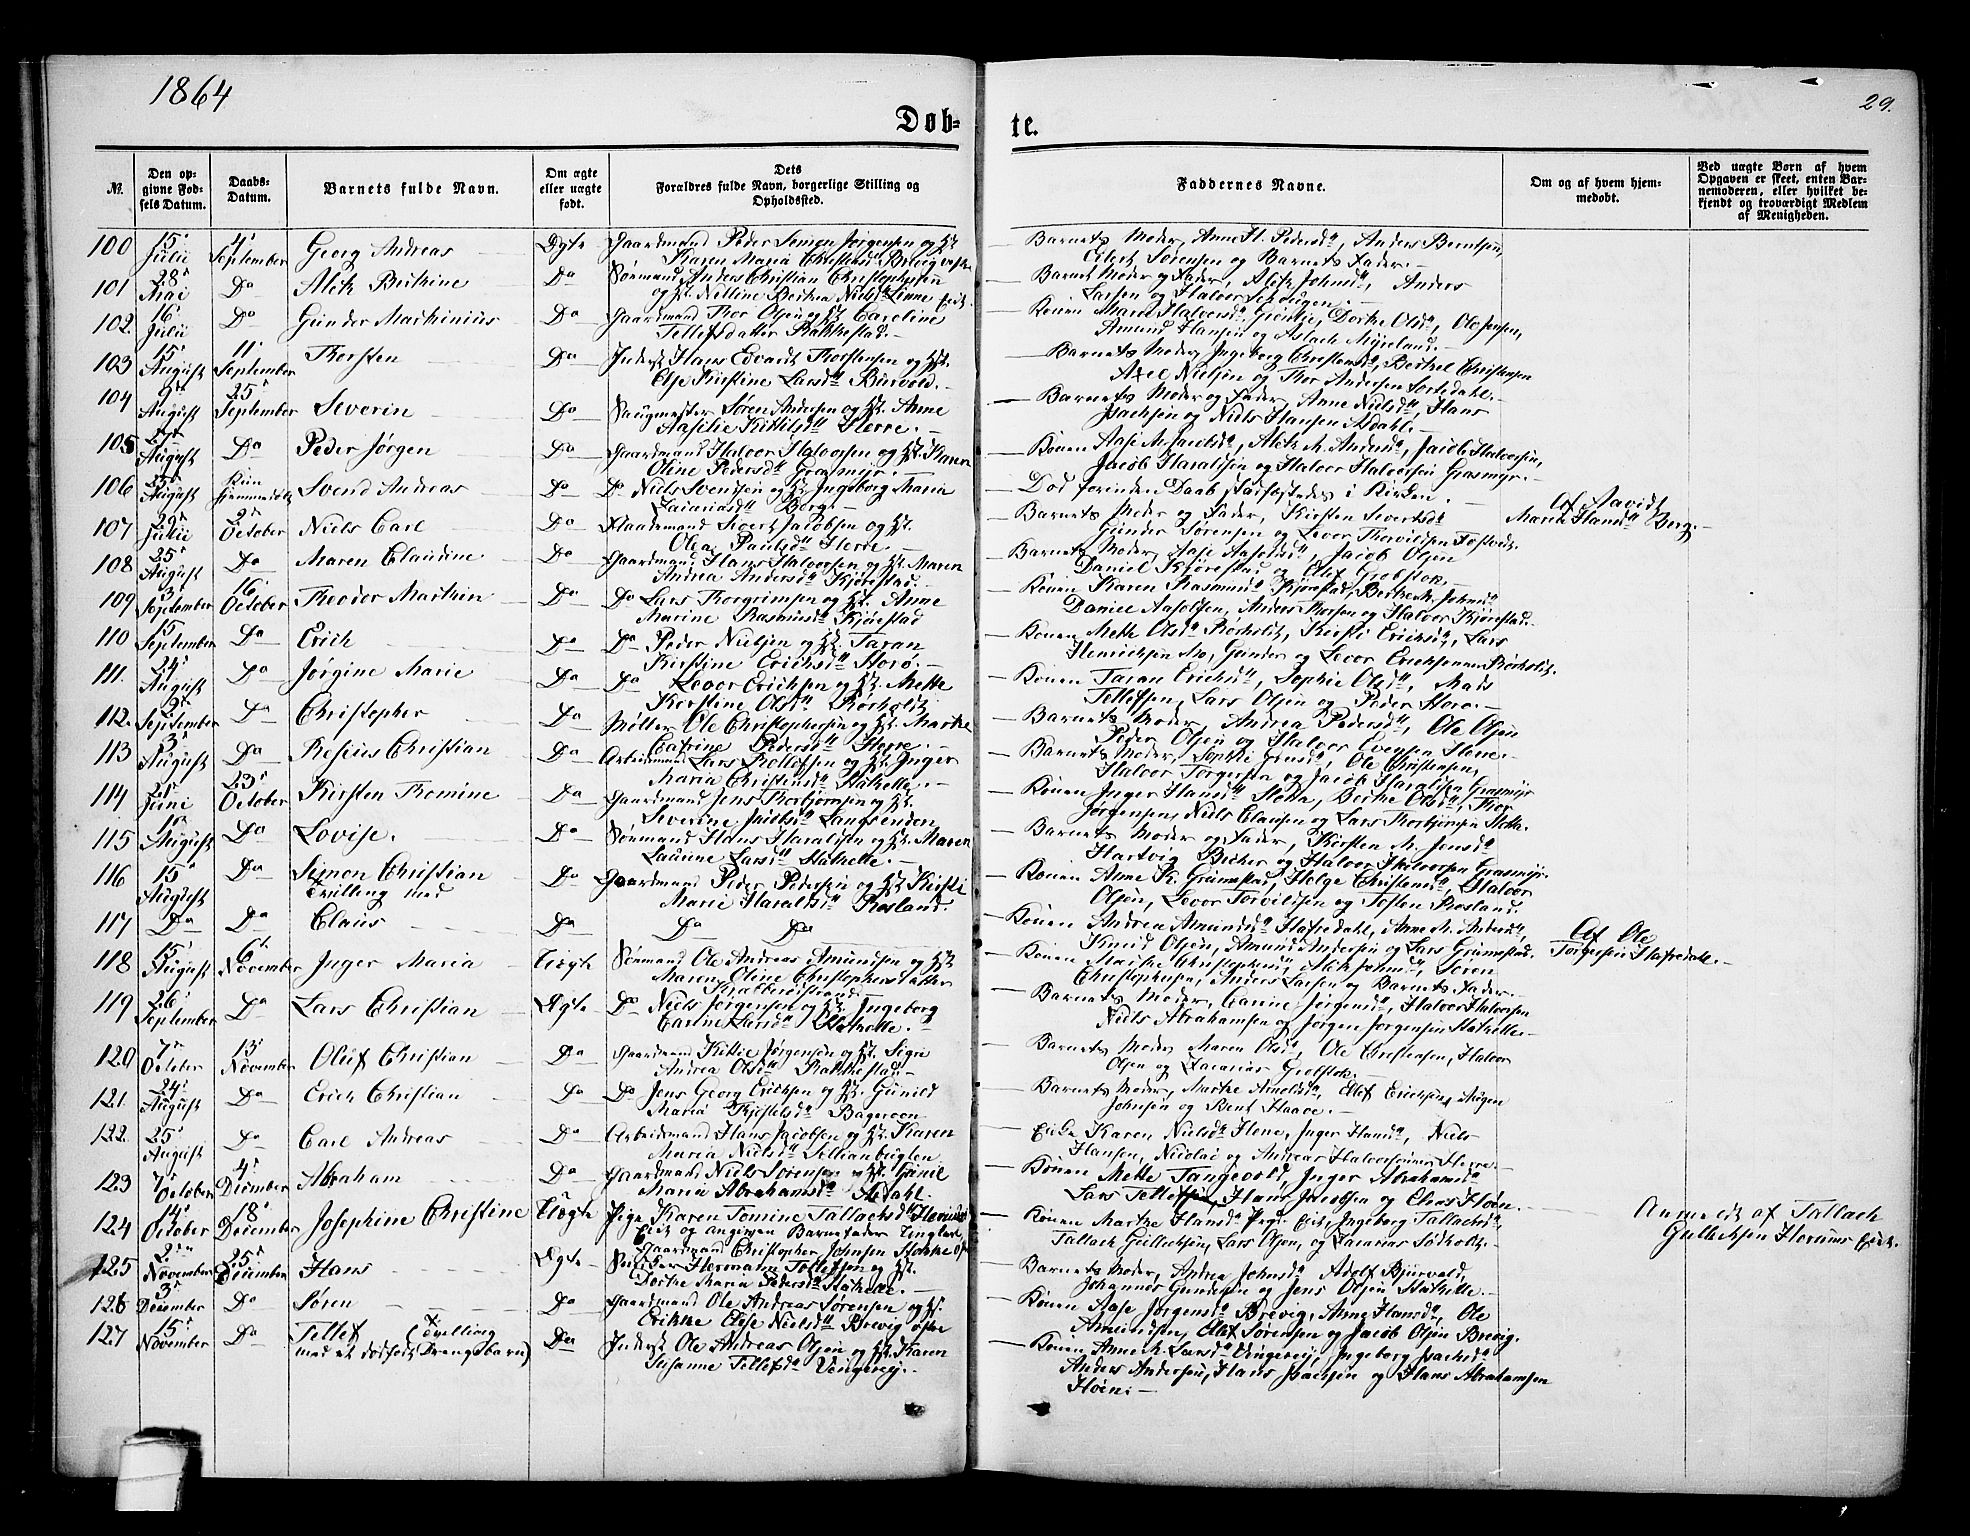 1864
29.
Døb-
te.
№.
Den op-
givne Fød-
sels Datum.
Daabs-
Datum.
Barnets fulde Navn.
Om ægte
eller uægte
født.
Dets
Forældres fulde Navn, borgerlige Stilling og
Opholdssted.
Faddernes Navne.
Om og af hvem hjem-
medøbt.
Ved uægte Børn af hvem
Opgaven er skeet, enten Bar-
nemoderen, eller hvilket be-
kjendt og troværdigt Medlem
af Menigheden.
100 15 Juli 4 September Georg Andreas Ægte Gaardmand Peder Simon Jørgensen og
Karen Maria Christensd Brevig
Barnets Moder, Anne H. Pedersd, Anders Berntsen,
Eilert Sørensen og Barnets Fader.
101 28 Mai Do Alek Birthine Do Sømand Anders Christian Christophersen
og Nilline Berthea Nielsd Linne Eid.
Barnets Moder og Fader, Alek Johnsd, Anders
Larsen og Halvor
102. 16 Juli Do Gunder Marthinius Do Gaardmand Thor Olsen og Caroline
Tellefsdatter Rakkestad.
Konen Maren Halvorsd, Dorthe Olsd, Ole Jensen,
Amund Hansen og Aslack
103 15 August 11 September Thorsten Do Inderst Hans Edvardt Thorstensen og
Else Kirstine Larsd
Barnets Moder, Ingeborg Christensd, Berthel Christensen
Axel Nielsen og Thor Andersen
104 9 August 25 September Severin Do Saugmester Søren Andersen og Anne
Aaselie Kittilsd Herre.
Barnets Moder og Fader, Anne Nielsd, Hans
Isachsen og Niels Hansen Aschdal.
105 27 August Do Peder Jørgen Do Gaardmand Halvor Halvorsen og Karen
Oline Pedersd Grasmyr.
Konen Aase M. Jacobsd, Alek M. Andersd, Jacob Halvorsen,
Jacob Haraldsen og Halvor Halvorsen Grasmyr.
106 25 August Kun hjemmedøbt Svend Andreas Do Do Niels Svendsen og Ingeborg Maria
Zachariasd Berg.
Død forinden Daab stadfæstedes i Kirken.
Af Tavidt
Maren Hansd Berg.
107 29 Juli 2 October Niels Carl Do Gaardmand Sivert Jacobsen og
Olea Paulsd Herre
Barnets Moder og Fader, Kirsten Sivertsd
Gunder Sørensen og Levor Thorvildsen Tostvedt.
108 25 August Do Maren Claudine Do Gaardmand Hans Halvorsen og Maren
Andrea Andersd Kjørestad.
Barnets Moder, Aase Aasolsd, Jacob Olsen
Daniel Kjørestad og Ellef Grobstok.
109 3 September 16 October Theodor Marthin Do Do Lars Thorgrimsen og Anne
Marine Rasmusd Kjørestad
Konen Karen Rasmusd Kjørestad, Berthe M. Johnsd
Daniel Aasolsen, Anders Thorsen og Halvor Kjørestad.
110 15 September Do Erich Do Do Peder Nielsen og Taran
Kirstine Erichsd Storø.
Konen Mette Olsd Rørholdt, Kirsti Erichsd, Lars
Henrichsen Mo, Gunder og Levor Erichsen Rørholdt.
111. 24 August Do Jørgine Marie Do Do Levor Erichsen og Mette
Kirstine Olsd Rørholdt
Konen Taran Erichsd, Sophie Olsd, Mads
Tellefsen, Lars Olsen og Peder Storø.
112. 9 September Do Christopher Do Møller Ole Christophersen og Marthe
Catrine Pedersd Herre.
Barnets Moder, Andrea Pedersd, Ole Olsen
Peder Olsen og Halvor Evensen Herre.
113 3 August Do Rasius Christian Do Arbeidsmand Lars Rollefsen og Inger
Maria Christensd Stathelle.
Barnets Moder, Sophie Ensd, Ole Christensen,
Halvor Torgersen og Jacob Haraldsen Grasmyr
114 21 Juni 23 October Kirsten Thomine Do Gaardmand Jens Thorbjørnsen og
Severine Jacobsd Langsenden
Konen Inger Hansd Stokke, Berthe Olsd, Thor
Jørgensen, Niels Clausen og Lars Thorbjørnsen Stokke.
115 15 August Do Lovise. Do Sømand Hans Haraldsen og Maren
Laurine Larsd Stathelle.
Barnets Moder og Fader, Kirsten M. Jensd
Hartvig Becker og Halvor Halvorsen Grasmyr.
116 15 August Do Simon Christian
Tvilling med Do Gaardmand Peder Pedersen og Kirsti
Marie Haraldsd Rosland.
Konen Anne K. Grimestad, Helge Christensd, Halvor
Olsen, Levor Torvildsen og Tosten Rosland.
117 Do Do Claus Do Do Do
Konen Andrea Amundsd Hafsredahl, Anne M. Andersd,
Knud Olsen, Amund Andersen og Lars Grimestad.
Af Ole
Torgersen Hafredahl.
118 15 August 6 November Inger Maria Uægte Sømand Ole Andreas Amundsen og
Maren Oline Christophersdatter
Krabberødstrand
Konen Marthe Christophersd, Alek Johnsd, Søren
Christophersen, Anders Larsen og Barnets Fader.
119 26 September Do Lars Christian Ægte Do Niels Jørgensen og Ingeborg
Carine Larsd Stathelle.
Barnets Moder, Carine Jørgensd, Halvor Halvorsen
Niels Abrahamsen og Jørgen Jørgensen Stathelle.
120 7 October 13 November Oluf Christian Do Gaardmand Kittil Jørgensen og Sigri
Andrea Olsd Rakkestad.
Barnets Moder Maren Olsd, Ole Christensen, Halvor
Olsen og Zacarias Grobstok.
121 24 August Do Erich Christian Do Do Jens Georg Erichsen og Gunild
Maria Kjøstelsd Bagerovn
Barnets Moder, Marthe Arnoldsd, Ellef Erichsen, Mogen
Johnsen og Bent Haave.
122. 25 August Do Carl Andreas Do Arbeidsmand Hans Jacobsen og Karen
Maria Nielsd
Enke Karen Nielsd Herre, Inger Hansd, Niels
Hansen, Nicolai og Andreas Halvorsen Herre
123 7 October 4 December Abraham Do Gaardmand Niels Sørensen og Gunil
Maria Abrahamsd Asdahl.
Konen Mette Tangevold, Inger Abrahamsd
Lars Tellefsen, Hans Jacobsen og Claus Høen.
124 14 October 18 December Josephine Christine Uægte Pige Karen Tomine Tallachsd
Eid og angiven Barnefader
Gaardmand Christopher Johnsen Stokke
Konen Marthe Hansd Eid, Ingeborg Tallachsd,
Tallach Gulliksen, Lars Olsen, og Zacarias Sødholt.
Anmeldt af Tallach
Gulliksen Eid.
125 2 November 25 December Hans Ægte Hermann Tollefsen og
Dorthe Maria Pedersd Stathelle.
Barnets Moder, Andrea Johnsd Adolf Bjørvald,
Johannes Gundersen og Jens Olsen Stathelle.
126 3 December Do Søren Do Gaardmand Ole Andreas Sørensen og
Erikke Else Nielsd Brevig
Konen Aase Jørgensd Brevig, Anne Hansd, Ole
Amundsen, Ellef Sørensen og Jacob Olsen Brevig.
127 15 November Do Tellef (Tvilling
med et dødfødt Drengebarn) Do Inderst Ole Andreas Olsen og Karen
Susanne Tellefsd
Konen Anne K. Larsd Ingeborg Isachsd
Anders Andersen, Hans Isachsen og Hans Abrahamsen
Høen.